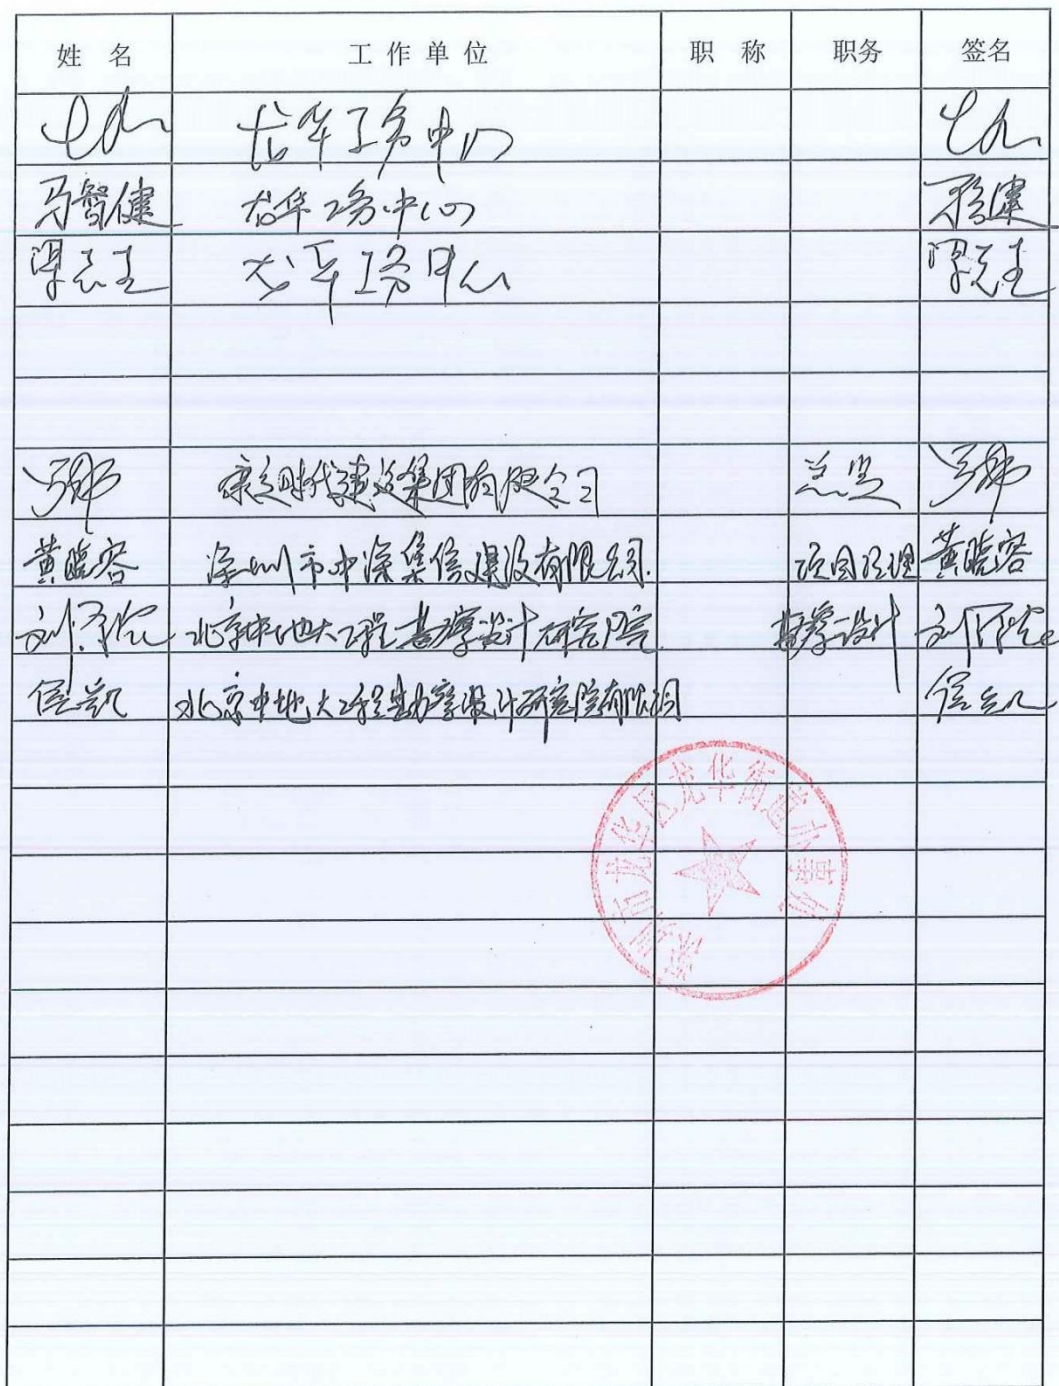 姓 名 工作单位 职 称 职务 签名
龙华工务中心
马智健 龙华工务中心 马智健
龙华工务中心
康立时代建设集团有限公司 总监
黄晓容 深圳市中深集信建设有限公司 项目经理 黄晓容
北京中地大工程勘察设计研究院 勘察设计
侯凯 北京中地大工程勘察设计研究院有限公司 侯凯
深圳市龙华区龙华街道办事处